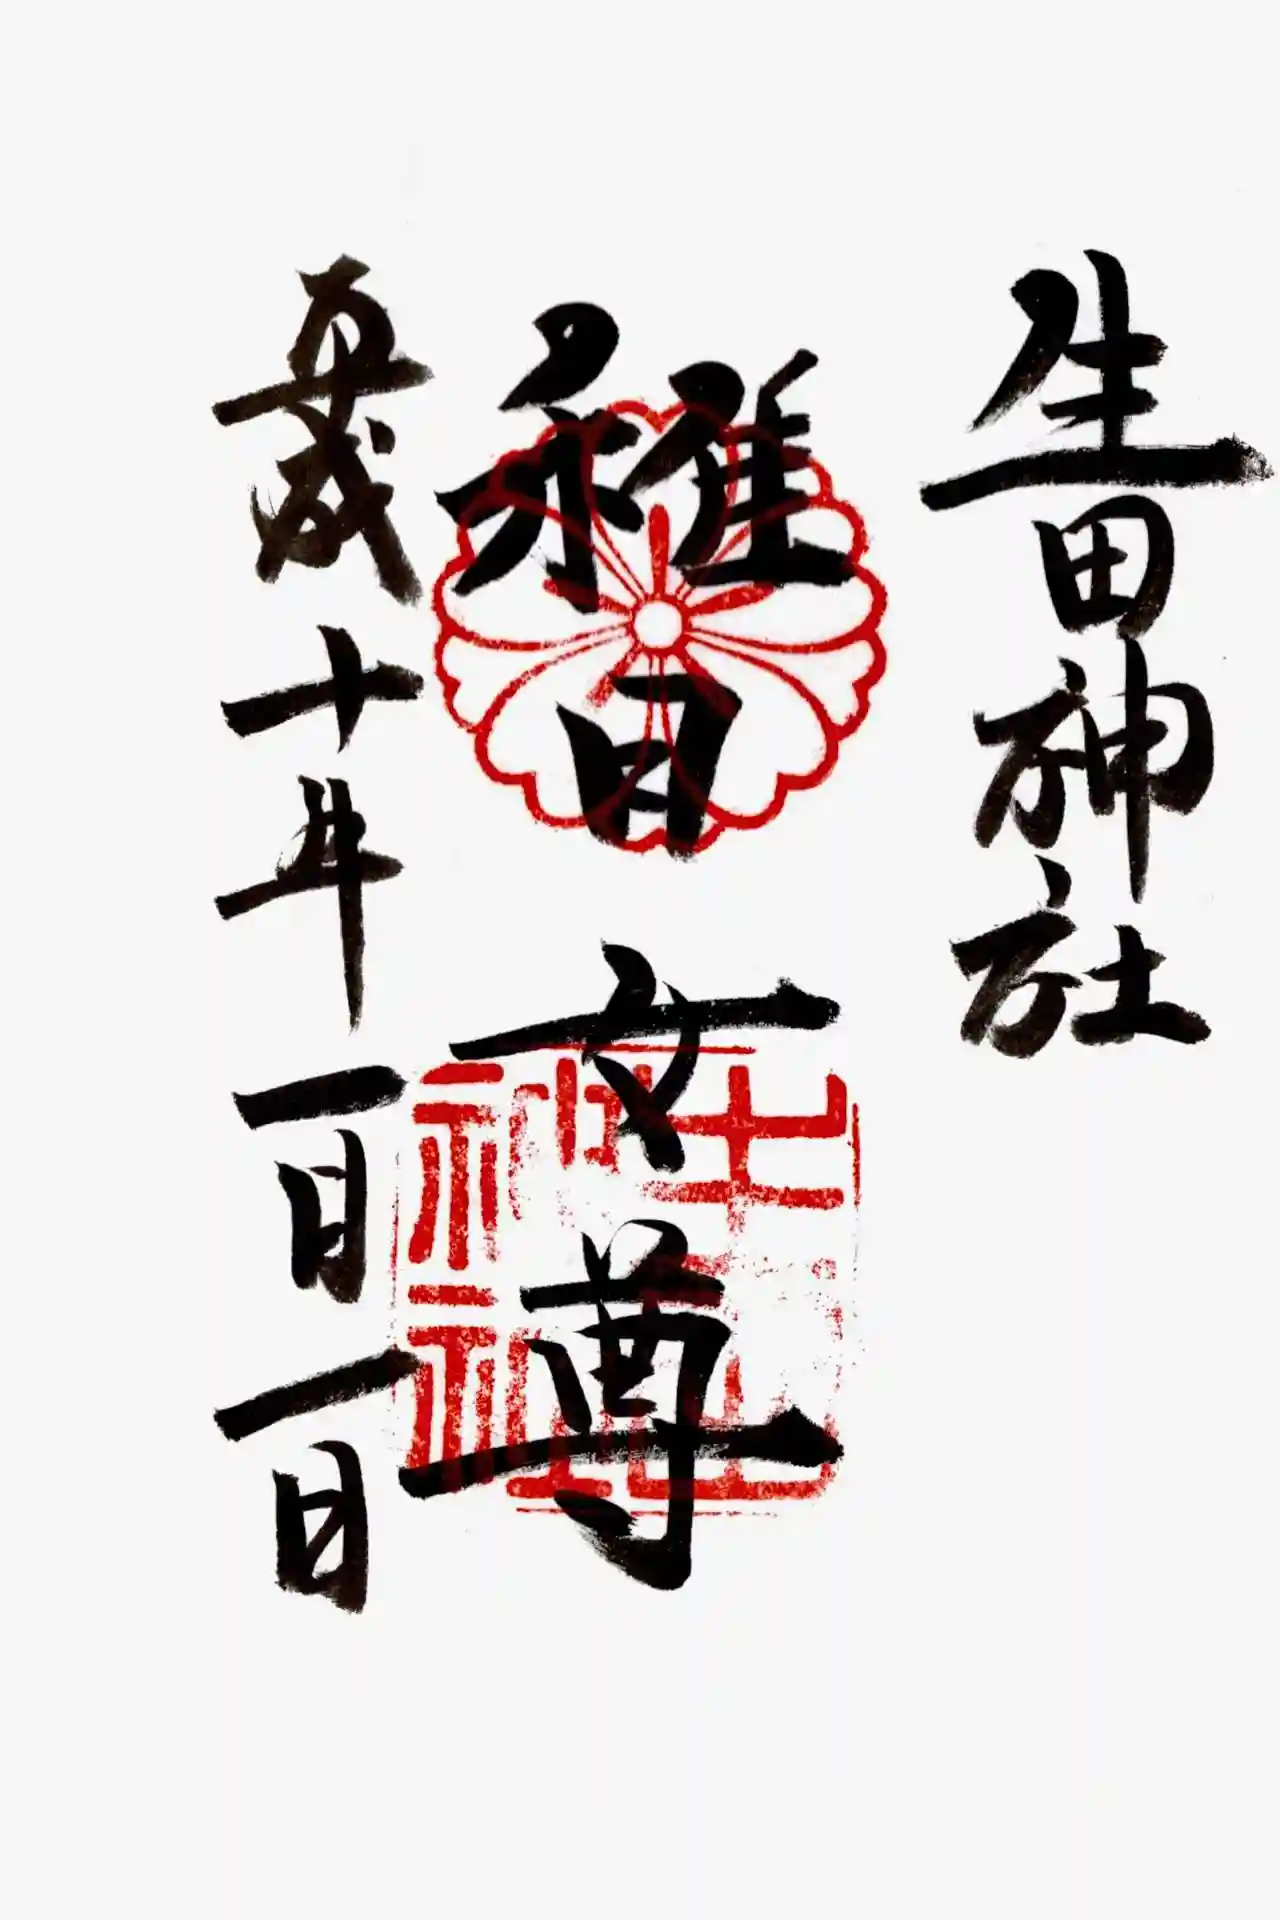 生田神社
稚日女尊
平成十年一月一日
生田神社